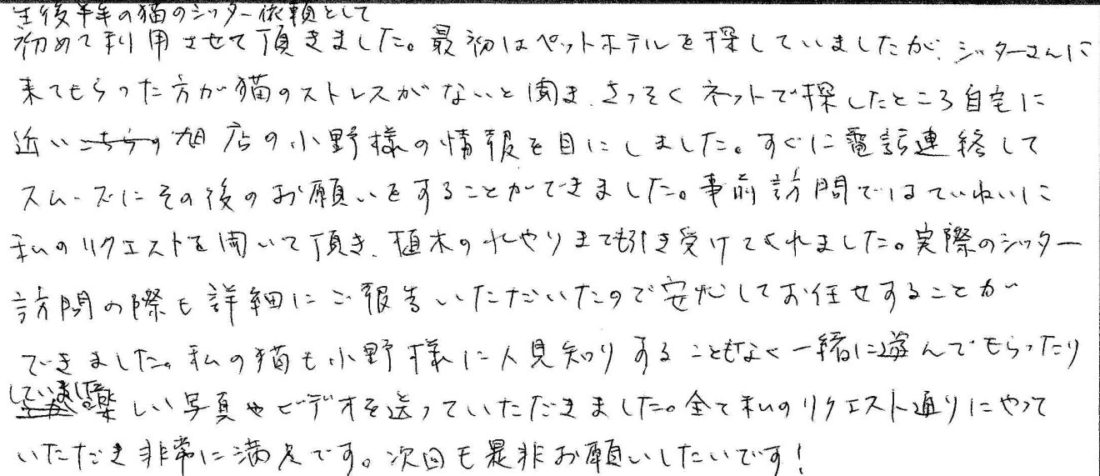 生後半年の猫のシッター依頼として
初めて利用させて頂きました。最初はペットホテルを探していましたが、シッターさんに
来てもらった方が猫のストレスがないと聞き、さっそくネットで探したところ自宅に
近いこちらの旭店の小野様の情報を目にしました。すぐに電話連絡して
スムーズにその後のお願いをすることができました。事前訪問ではていねいに
私のリクエストを聞いて頂き、植木の水やりまでも引き受けてくれました。実際のシッター
訪問の際も詳細にご報告いただいたので安心してお任せすることが
できました。私の猫も小野様に人見知りすることもなく一緒に遊んでもらったり
していました。楽しい写真やビデオを送っていただきました。全て私のリクエスト通りにやって
いただき非常に満足です。次回も是非お願いしたいです!